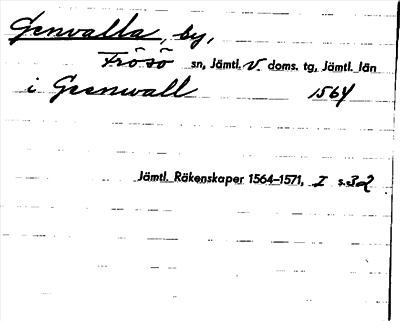 Genvalla, by,
Frösö sn, Jämtl. V. doms. tg, Jämtl. län
i Genwall 1564
Jämtl. Räkenskaper 1564–1571, I s. 32